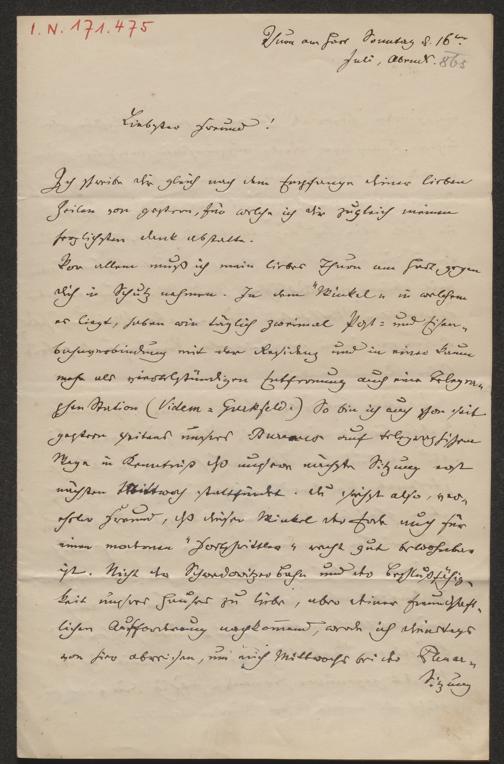 I. N. 171.475
Thurn am Hart Sonntag d. 16ten
Juli, Abends. 865
Liebster Freund!
Ich schreibe dir gleich nach dem Empfange deiner lieben
Zeilen von gestern, für welche ich dir zugleich meinen
herzlichsten Dank abstatte.
Vor allem muß ich mein liebes Thurn am Hart gegen
dich in Schutz nehmen. In dem "Winkel" in welchem
es liegt, haben wir täglich zweimal Post= und Eisen-
bahnverbindung mit der Residenz und in einer kaum
mehr als viertelstündigen Entfernung auch eine Telegra-
phen Station (Videm=Gurkfeld.) So bin ich auch schon seit
gestern seitens unseres Bureaus auf telegrafischem
Wege in Kenntniß daß unsere nächste Sitzung erst
nächsten Mittwoch stattfindet. Du siehst also, ver-
ehrter Freund, daß dieser Winkel der Erde auch für
einen modernen "Fortschrittler" recht gut bewohnbar
ist. Nicht der Schwadowitzer Bahn und der Beschlußfähig-
keit unseres Hauses zu Liebe, aber deiner freundschaft-
lichen Aufforderung nachkommend, werde ich Dienstags
von hier abreisen, um mich Mittwochs bei der Plenar-
Sitzung